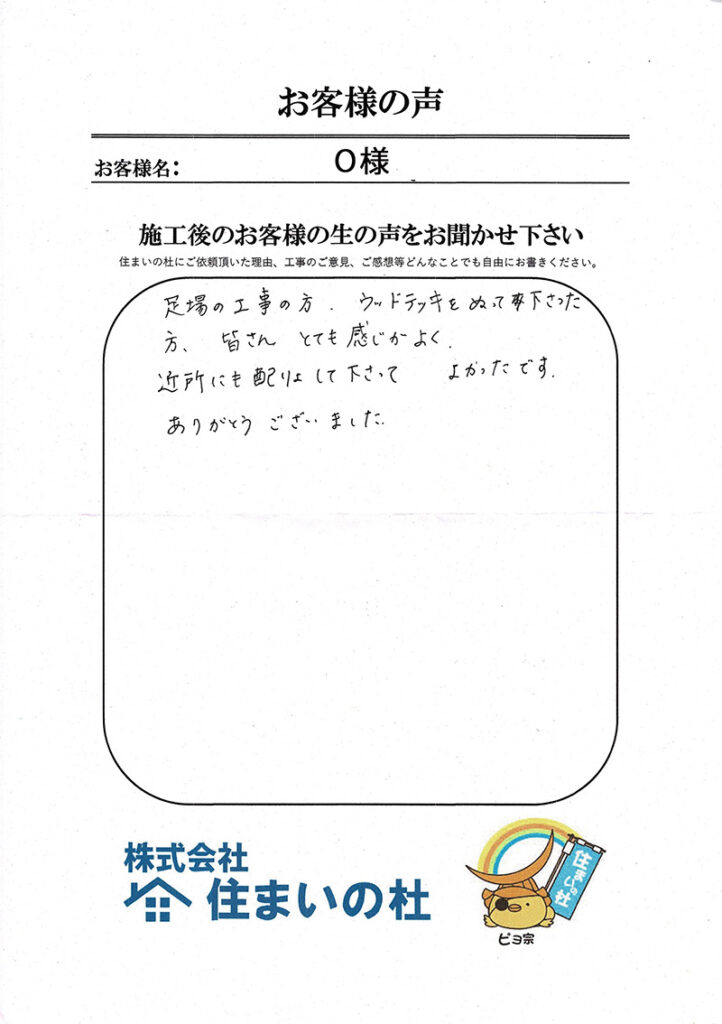 お客様の声
お客様名： O様
施工後のお客様の生の声をお聞かせ下さい
住まいの杜にご依頼頂いた理由、工事のご意見、ご感想等どんなことでも自由にお書きください。
足場の工事の方、ウッドデッキをぬって下さった
方、皆さん とても感じがよく、
近所にも配りょして下さって よかったです。
ありがとうございました。
株式会社
住まいの杜
住まいの杜
ピヨ宗